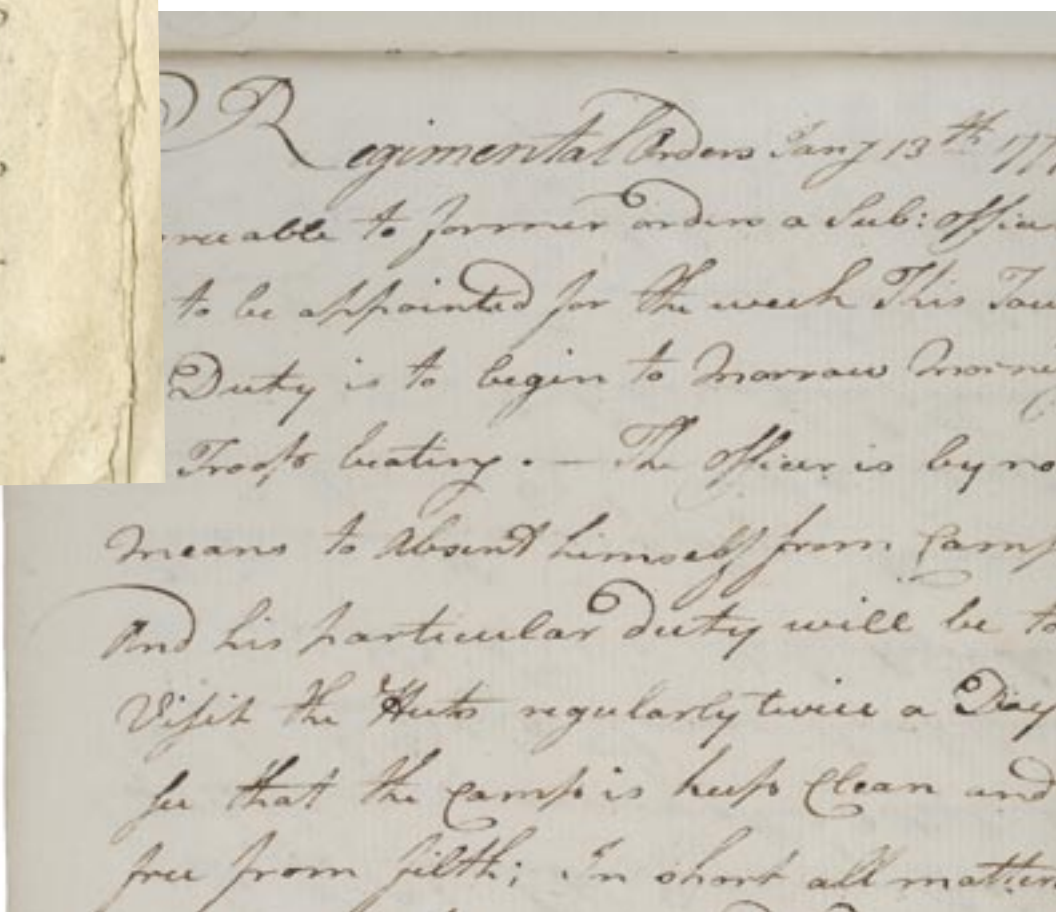 Regimental Orders Jany 13th 177
greeable to former orders a Sub: officer
to be appointed for the week This Tour
Duty is to begin to morrow Morning
Troop beating. — The officer is by no
means to Absent himself from Camp
And his particular duty will be to
Visit the Huts regularly twice a Day
see that the Camp is kept Clean and
free from filth; In short all matters